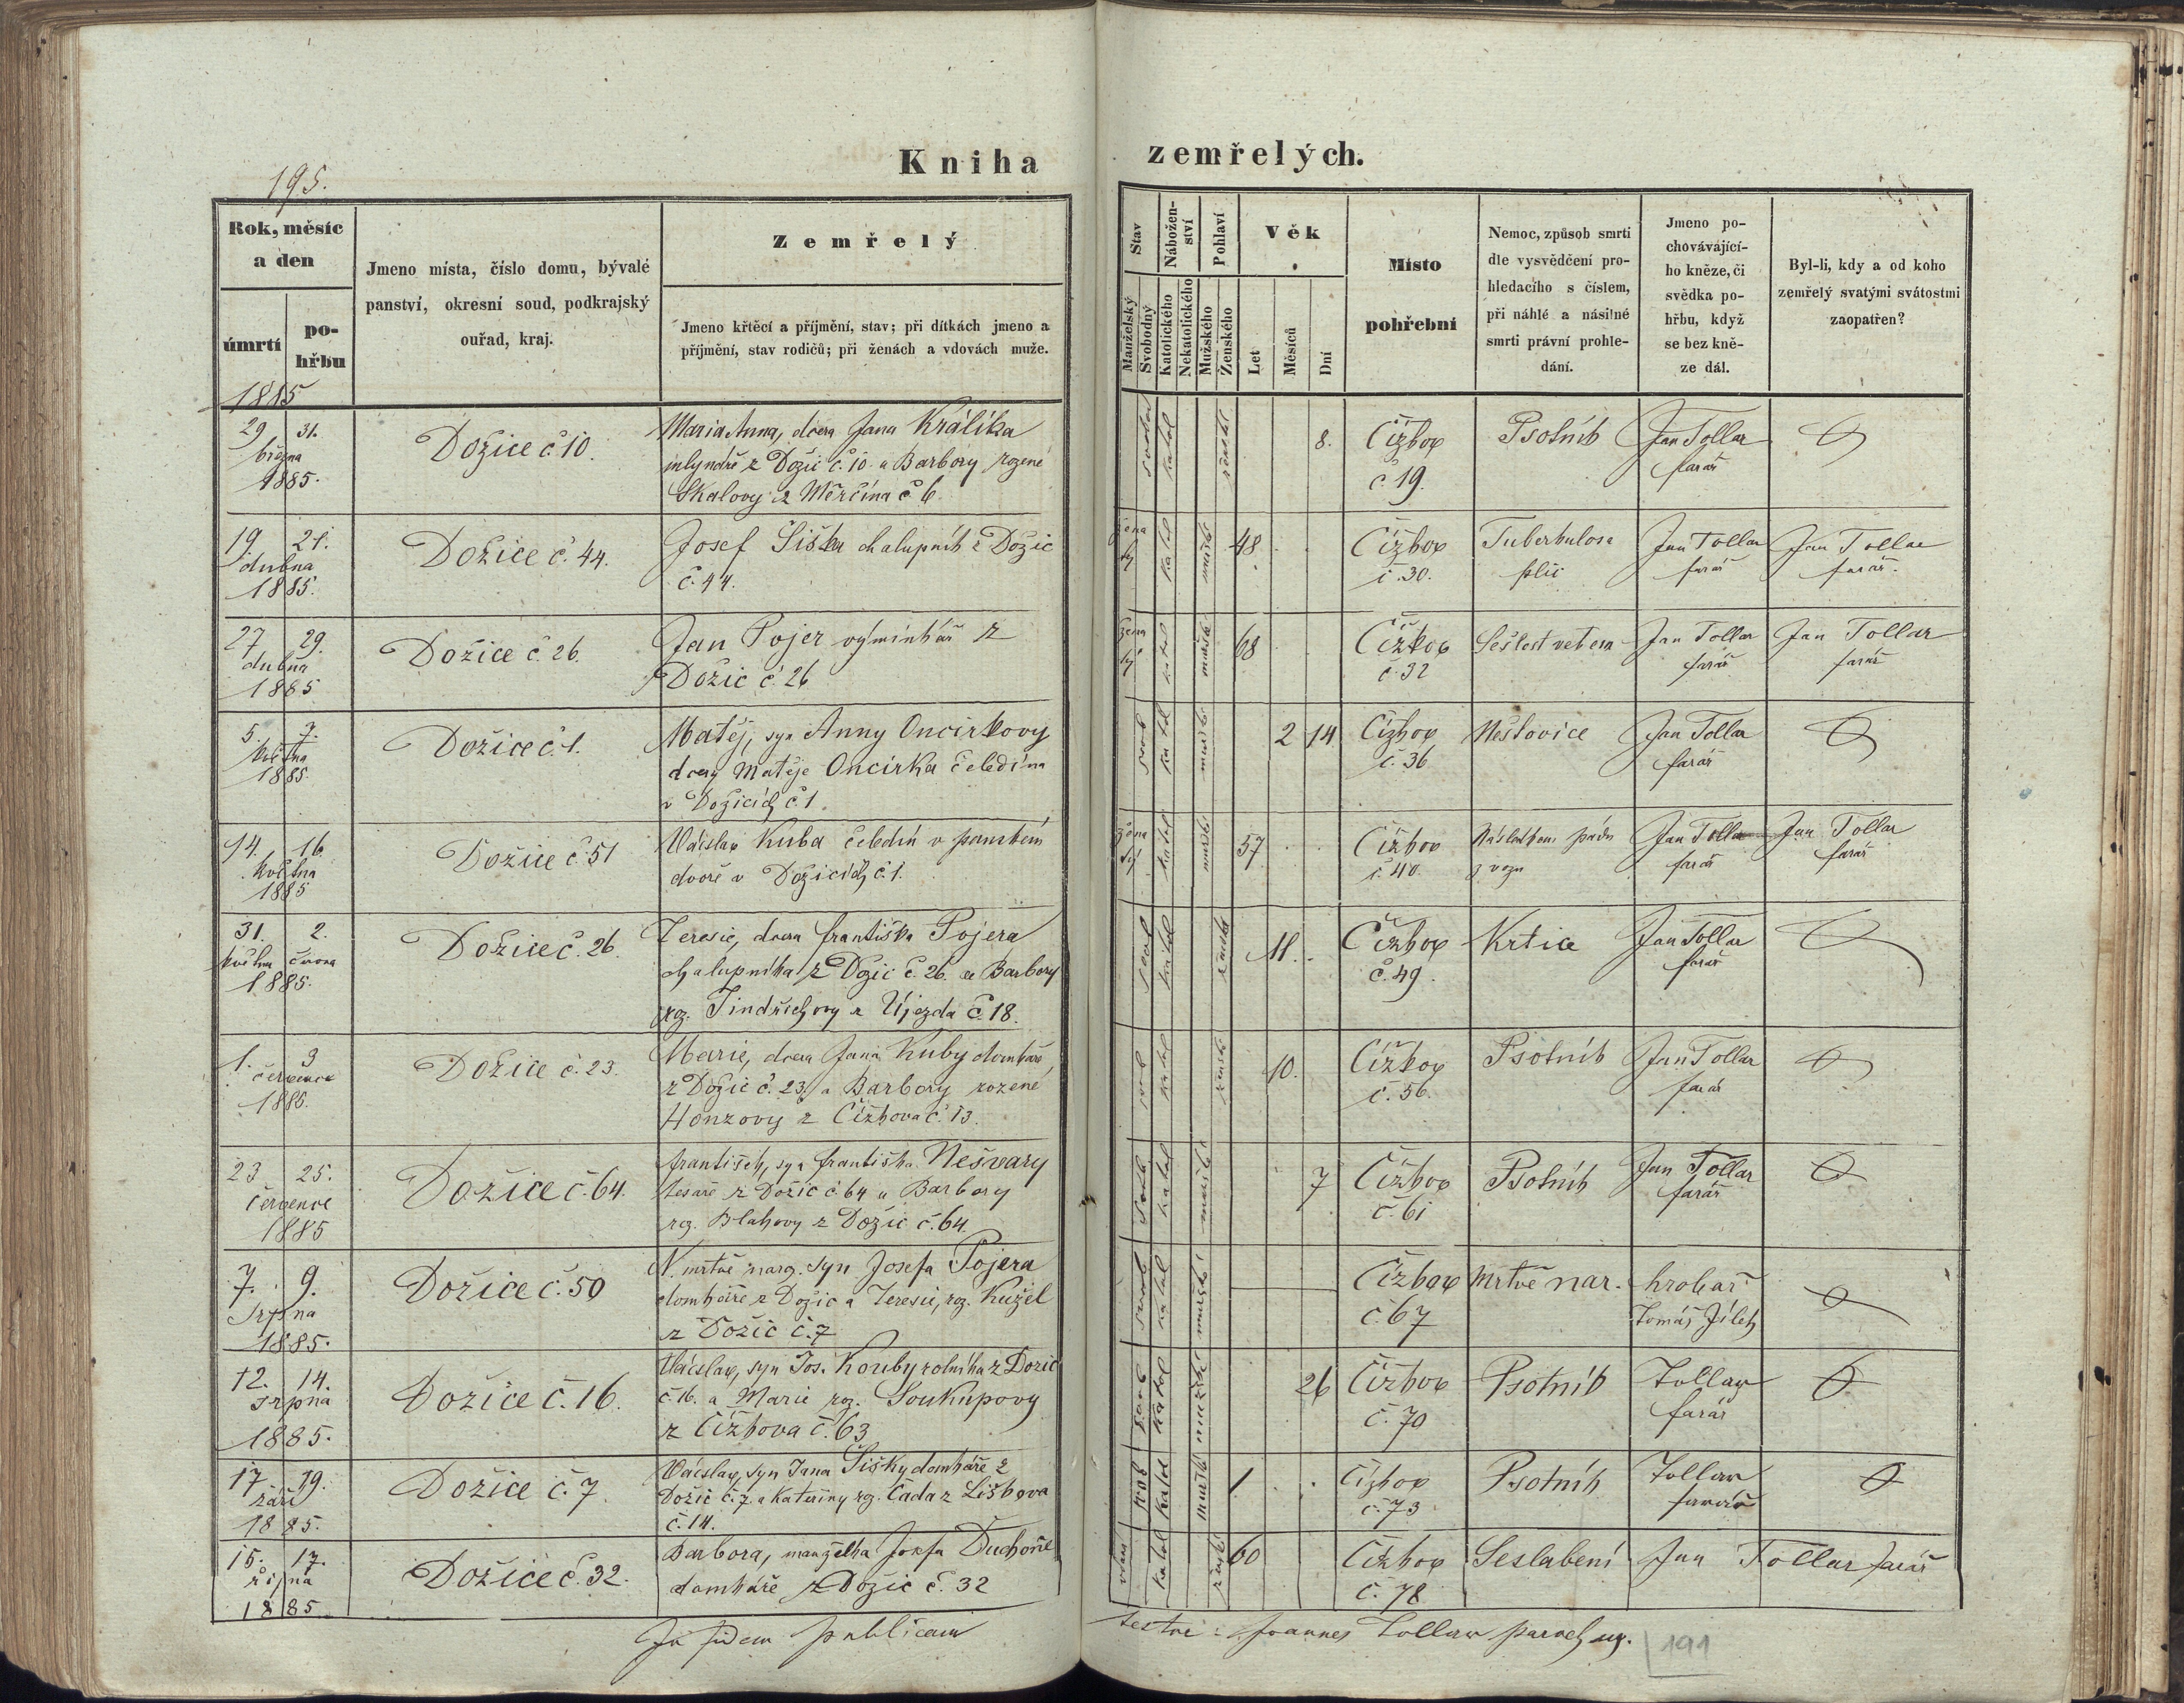 195.
Kniha zemřelých.
Rok, měsíc a den
úmrtí
pohřbu
Jmeno místa, číslo domu, bývalé panství, okresní soud, podkrajský ouřad, kraj.
Zemřelý
Jmeno křtěcí a příjmění, stav; při dítkách jmeno a příjmění, stav rodičů; při ženách a vdovách muže.
Stav
Manželský
Svobodný
Náboženství
Katolického
Nekatolického
Pohlaví
Mužského
Ženského
Věk
Let
Měsíců
Dní
Místo pohřební
Nemoc, způsob smrti dle vysvědčení prohledacího s číslem, při náhlé a násilné smrti právní prohledání.
Jmeno pochovávajícího kněze, či svědka pohřbu, když se bez kněze dál.
Byl-li, kdy a od koho zemřelý svatými svátostmi zaopatřen?
1885
29 31. března 1885.
Dožice č. 10.
Maria Anna, dcera Jana Králíka
mlynáře z Dožic č. 10. a Barbory rozené
Skalovy z Měrčína č. 6.
svobod katol ženské 8.
Čížkov č. 19.
Psotník
Jan Tollar farář
19 21. dubna 1885.
Dožice č. 44.
Josef Šiška chalupník z Dožic
č. 44.
ženatý katol mužské 48
Čížkov č. 30.
Tuberkulosa plic
Jan Tollar farář
Jan Tollar farář.
27 29. dubna 1885
Dožice č. 26.
Jan Pojer výminkář z
Dožic č. 26
ženatý katol mužské 68
Čížkov č. 32
Sešlost věkem
Jan Tollar farář
Jan Tollar farář
5. 7. května 1885.
Dožice č. 1.
Matěj, syn Anny Oncirkovy
dcery Matěje Oncirka čeledína
v Dožicích č. 1.
svob katol mužské 2 14
Čížkov č. 36
Neštovice
Jan Tollar farář
14. 16. května 1885
Dožice č. 51
Václav Kuba čeledín v panském
dvoře v Dožicích č. 1.
ženatý katol mužské 57
Čížkov č. 40.
Následkem pádu z vozu
Jan Tollar farář
Jan Tollar farář
31. 2. května června 1885.
Dožice č. 26.
Teresie, dcera Františka Pojera
chalupníka z Dožic č. 26. a Barbory
roz. Jindřichovy z Újezda č. 18.
svob katol ženské 11.
Čížkov č. 49.
Krtice
Jan Tollar farář
1. 3 července 1885.
Dožice č. 23.
Marie, dcera Jana Kuby domkáře,
z Dožic č. 23. a Barbory rozené
Honzovy z Čížkova č. 13.
svob katol ženské 10.
Čížkov č. 56.
Psotník
Jan Tollar farář
23 25. července 1885
Dožice č. 64.
František, syn Františka Nešvary
tesaře z Dožic č. 64 a Barbory
roz. Blahovy z Dožic č. 64.
svob katol mužské 7
Čížkov č. 61
Psotník
Jan Tollar farář
7. 9. srpna 1885.
Dožice č. 50
N. mrtvě naroz. syn Josefa Pojera
domkáře z Dožic a Teresie, roz. Kužel
z Dožic č. 7
svob katol mužské
Čížkov č. 67
Mrtvě nar.
hrobař Tomáš Jílek
12. 14. srpna 1885.
Dožice č. 16.
Václav, syn Jos. Kouby rolníka z Dožic
č. 16. a Marie roz. Soukupovy
z Čížkova č. 63
svob katol mužské 26
Čížkov č. 70
Psotník
Tollar farář
17 19. září 1885.
Dožice č. 7
Václav, syn Jana Šišky domkáře z
Dožic č. 7. a Kateřiny roz. Čada z Liškova
č. 14.
svob katol mužské 1
Čížkov č. 73
Psotník
Tollar farář
15. 17. října 1885
Dožice č. 32.
Barbora, manželka Josefa Duchoně
domkáře z Dožic č. 32
katol ženské 60
Čížkov č. 78
Seslabení
Jan Tollar farář
In fidem publicam
testor: Joannes Tollar parochus.
191